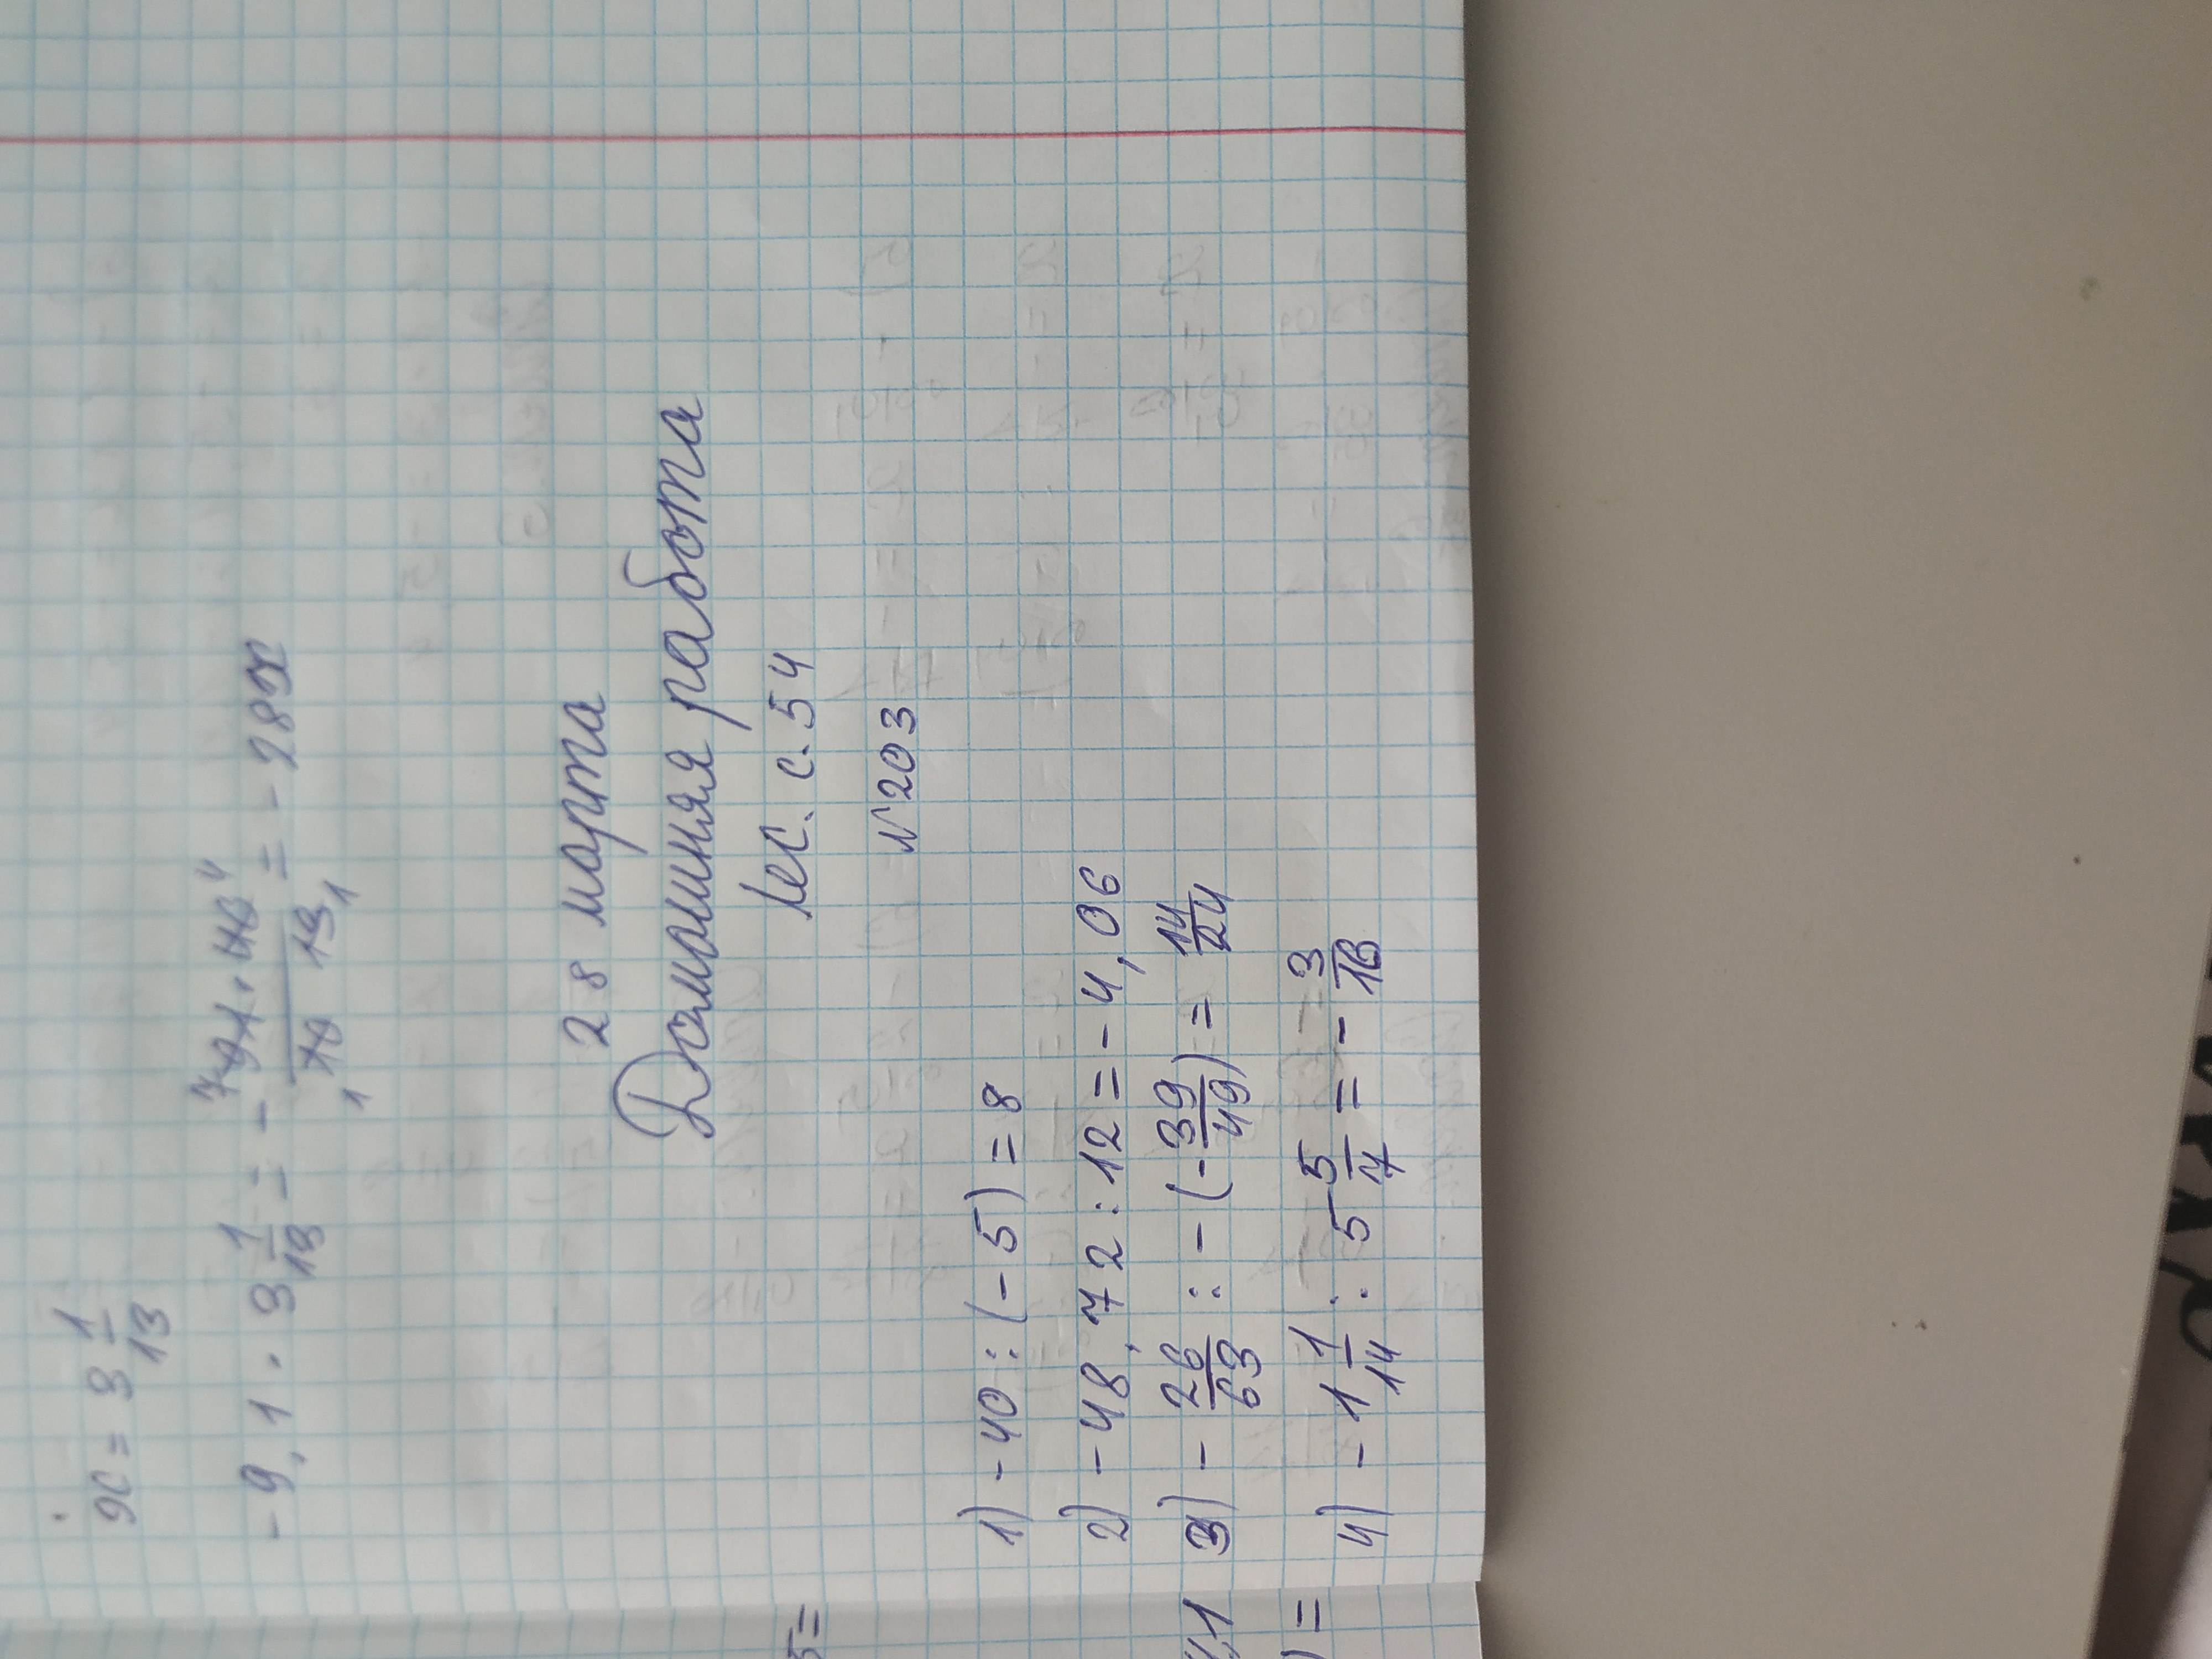 x = 3 1/13
-9,1 · 3 1/13 = - 91 · 40 / 10 · 13 = - 28
28 марта
Домашняя работа
с. 54
№203
1) -40 : (-5) = 8
2) -48,72 : 12 = -4,06
3) - 26/63 : - (- 39/49) = 14/24
4) - 1 1/14 : 5 5/7 = - 3/16
5=
1
) =